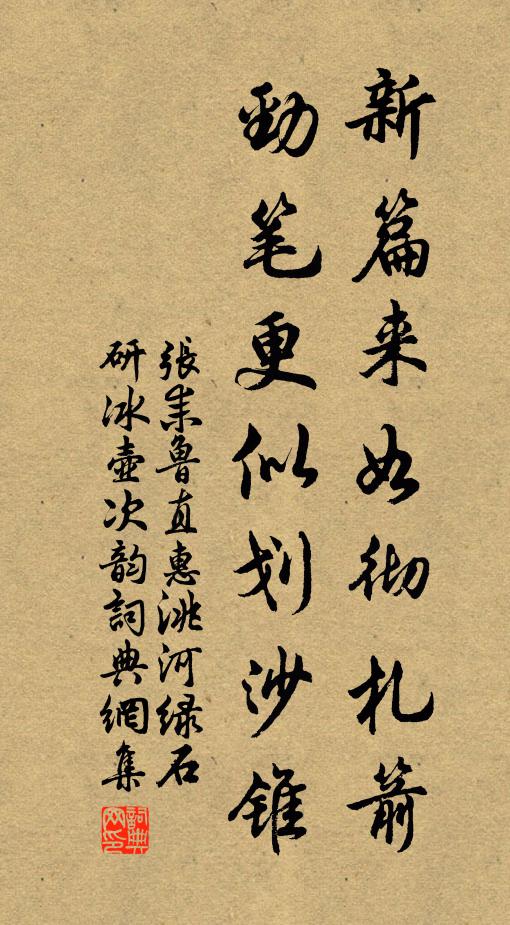 新篇来如彻札箭
勁笔更似划沙錐
張耒魯直惠洮河緑石
研冰壺次韵詞典網集
詞典网印